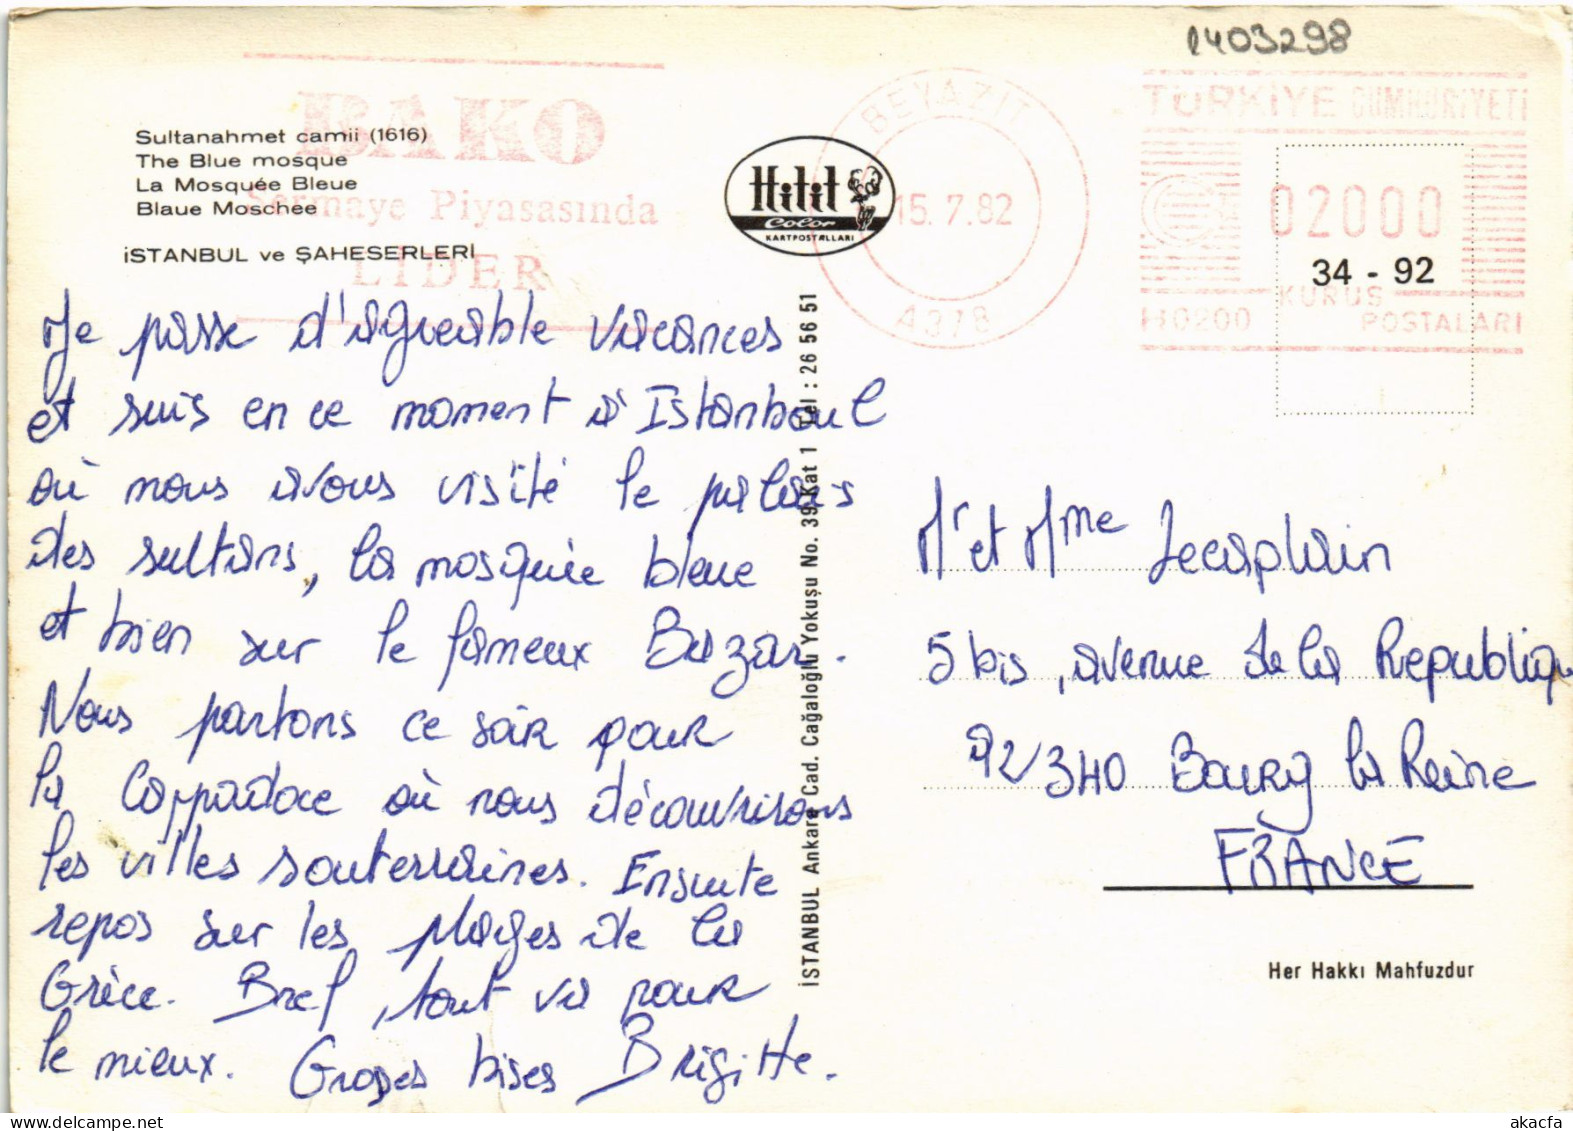 1403298
BAKO
Sermaye Piyasasında
LİDER
BEYAZIT
15.7.82
A378
TÜRKİYE CUMHURİYETİ
02000
KURUŞ
H0200
POSTALARI
34 - 92
Sultanahmet camii (1616)
The Blue mosque
La Mosquée Bleue
Blaue Moschee
İSTANBUL ve ŞAHESERLERİ
Hitit
Color
KARTPOSTALLARI
İSTANBUL Ankara Cad. Cağaloğlu Yokuşu No. 39/Kat 1 Tel : 26 56 51
Je passe d'agréable vacances
et suis en ce moment à Istanboul
où nous avons visité le palais
des sultans, la mosquée bleue
et bien sur le fameux Bazar.
Nous partons ce soir pour
la Cappadoce où nous découvrirons
les villes souterraines. Ensuite
repos sur les plages de la
Grèce. Bref, tout va pour
le mieux. Grosses bises Brigitte.
Mr et Mme Lecaplain
5 bis, avenue de la Republiqu
92340 Bourg la Reine
FRANCE
Her Hakkı Mahfuzdur
akacfa